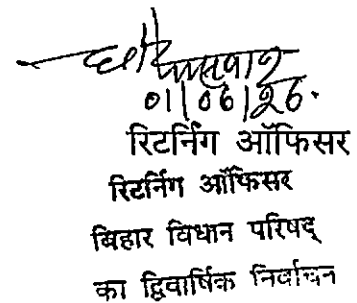 01/06/26.
रिटर्निंग ऑफिसर
रिटर्निंग ऑफिसर
बिहार विधान परिषद्
का द्विवार्षिक निर्वाचन